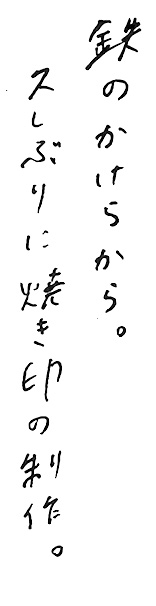 鉄のかけらから。
久しぶりに焼き印の制作。